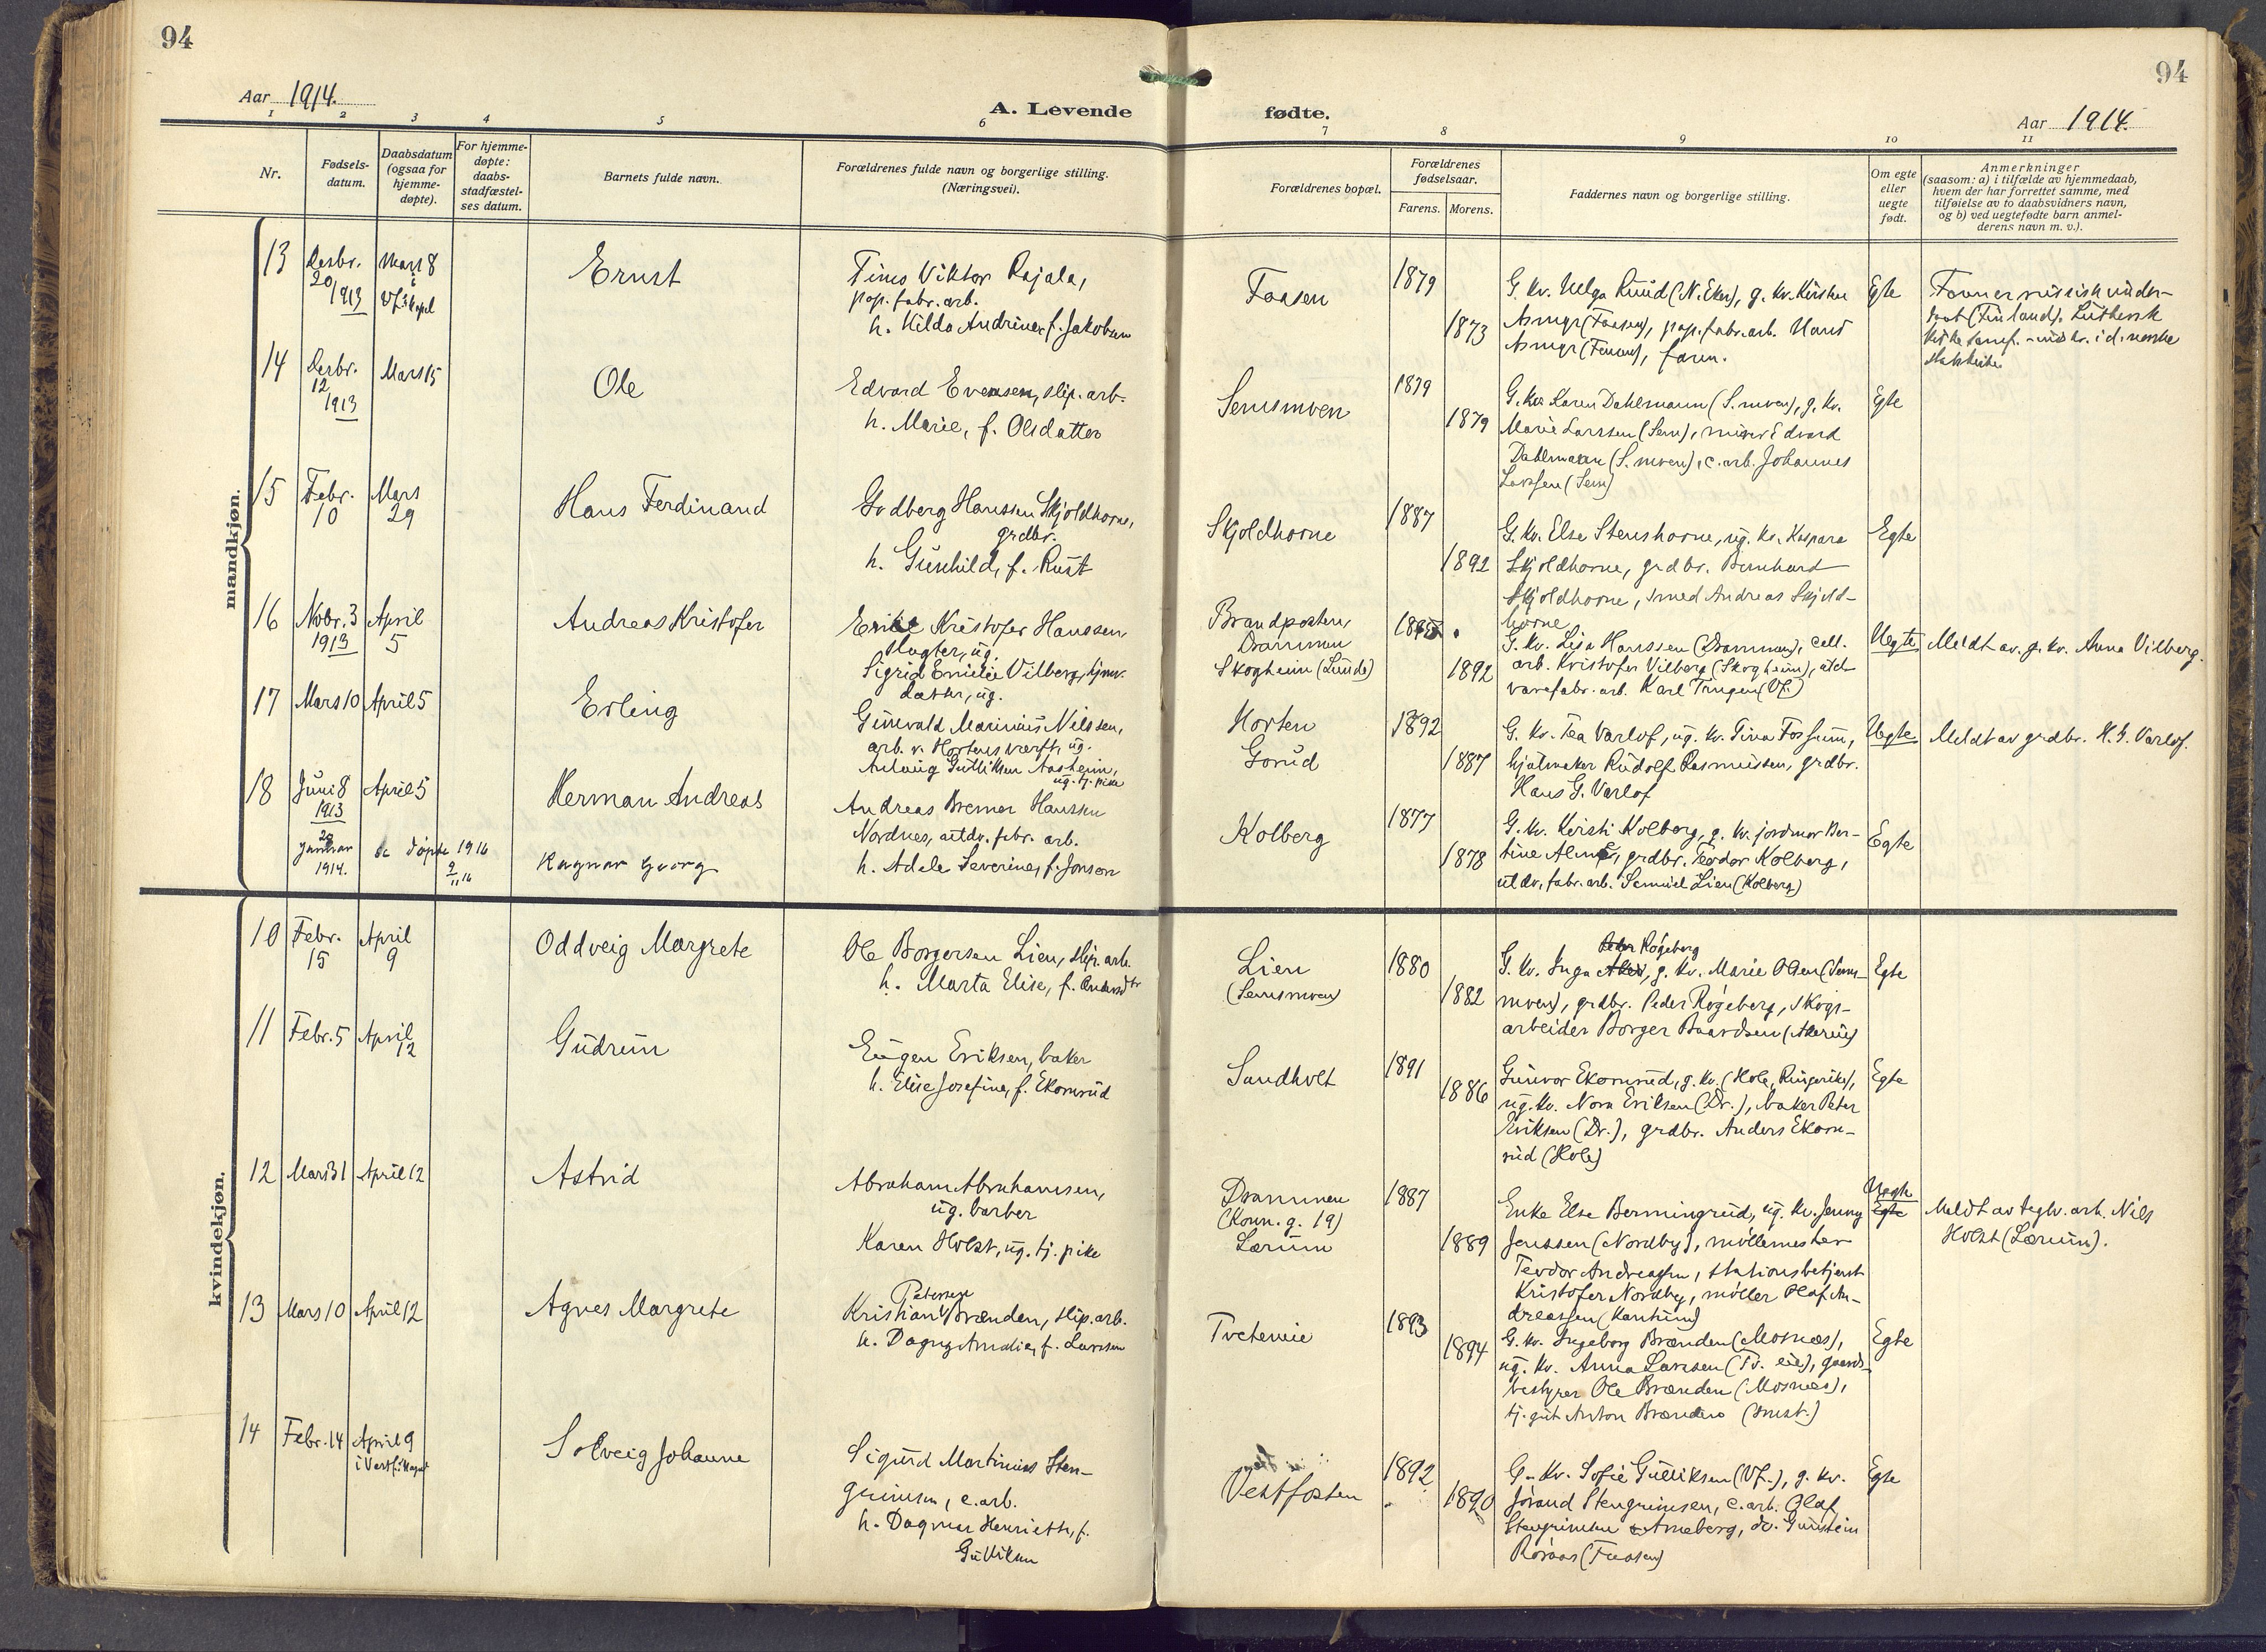 94
94
Aar 1914.
A. Levende fødte.
Aar 1914.
1 2 3 4 5 6 7 8 9 10 11
Nr.
Fødsels-
datum.
Daabsdatum
(ogsaa for
hjemme-
døpte).
For hjemme-
døpte:
daabs-
stadfæstel-
ses datum.
Barnets fulde navn.
Forældrenes fulde navn og borgerlige stilling.
(Næringsvei).
Forældrenes bopæl.
Forældrenes
fødselsaar.
Farens. Morens.
Faddernes navn og borgerlige stilling.
Om egte
eller
uegte
født.
Anmerkninger
(saasom: a) i tilfælde av hjemmedaab,
hvem der har forrettet samme, med
tilføielse av to daabsvidners navn,
og b) ved uegtefødte barn anmel-
derens navn m. v.).
mandkjøn.
13
Desbr.
20
1913
Mars 8
i
Vf. kapel
Ernst
Timo Viktor Rajala,
pap. fabr. arb.
h. Hilda Andrine, f. Jakobsen
Faasen
1879
1873
G. kv. Helga Ruud (N. Eker), g. kv. Kirstine
Asmyr (Faasen), pap. fabr. arb. Hans
Asmyr (Faasen), faren.
Egte
Faren er russisk under-
saat (Finland). Luthersk
i d. norske
statskirke
14
Desbr.
12
1913
Mars 15
Ole
Edvard Evensen, slip. arb.
h. Marie, f. Olsdatter
Semsmoen
1879
1879
G. kv. Karen Dahlmann (S. moen), g. kv.
Marie Larssen (Sem), murer Edvard
Dahlmann (S. moen), c. arb. Johannes
Larssen (Sem)
Egte
15
Febr.
10
Mars
29
Hans Ferdinand
Gudberg Hanssen Skjoldhorne,
grdbr.
h. Gunhild, f. Rust
Skjoldhorne
1887
1892
G. kv. Else Stenshorne, ug. kv. Kaspara
Skjoldhorne, grdbr. Bernhard
Skjoldhorne, smed Andreas Skjold-
horne
Egte
16
Novbr. 3
1913
April
5
Andreas Kristofer
Kristofer Hanssen,
slagter, ug.
Sigrid Emilie Vilberg, hjmv.
datter, ug.
Brandposten,
Drammen
Skogheim (Lunde)
1892
G. kv. Lisa Hanssen (Drammen), cell.
arb. Kristofer Vilberg (Skogheim), uld-
varefabr. arb. Karl Trugen (Vf.)
Uegte
Meldt av g. kv. Anna Vilberg.
17
Mars 10
April 5
Erling
Gunvald Marinius Nilssen,
arb. v. Hortens verft, ug.
Anlaug Gulliksen Aasheim,
ug. tj. pike
Horten
Gorud
1892
1887
G. kv. Tea Varlof, ug. kv. Tina Fossum,
hjulmaker Rudolf Rasmussen, grdbr.
Hans G. Varlof
Uegte
Meldt av grdbr. H. G. Varlof.
18
Juni 8
1913
April 5
Herman Andreas
Andreas Bremer Hanssen
Nordnes, uldv. fabr. arb.
h. Adele Severine, f. Jonson
Kolberg
1877
1878
G. kv. Kersti Kolberg, g. kv. jordmor Ber-
tine Alme, grdbr. Teodor Kolberg,
uldv. fabr. arb. Samuel Lien (Kolberg)
Egte
20
Januar
1914.
døpte 1916
9
11 16
Ragnar Georg
kvindekjøn.
10
Febr.
15
April
9
Oddveig Margrete
Ole Borgersen Lien, slip. arb.
h. Marta Elise, f. Andersdtr
Lien
(Semsmoen)
1880
1882
Røgeberg
G. kv. Inga, g. kv. Marie Olsen (Sems-
moen), grdbr. Peder Røgeberg, skogs-
arbeider Borger Baardsen (Akerun)
Egte
11
Febr. 5
April
12
Gudrun
Eugen Eriksen, baker
h. Elise Josefine, f. Ekornrud
Sandholt
1891
1886
Gunvor Ekornrud, g. kv. (Hole, Ringerike),
ug. kv. Nora Eriksen (Dr.), baker Peter
Eriksen (Dr.), grdbr. Anders Ekorn-
rud (Hole)
Egte
12
Mars 31
April 12
Astrid
Abraham Abrahamsen,
ug. barber
Karen Holst, ug. tj. pike
Drammen
(Konn. g. 19)
Lærum
1887
1889
Enke Else Bermingrud, ug. kv. Jenny
Jenssen (Nordby), møllemester
Teodor Andreassen, stationsbetjent
Kristofer Nordby, møller Olaf An-
dreassen (Kantum)
Uegte
Egte
Meldt av teglv. arb. Nils
Holst (Lærum).
13
Mars 10
April 12
Agnes Margrete
Petersen
Kristian Brænden, slip. arb.
h. Dagny Amalie, f. Larssen
Tveteneie
1893
1894
G. kv. Ingeborg Brænden (Mosnæs),
ug. kv. Anna Larssen (Tv. eie), gaards-
bestyrer Ole Brænden (Mosnæs),
tj. gut Anton Brænden (smst.)
Egte
14
Febr. 14
April 9
i Vestf. kapel
Solveig Johanne
Sigurd Martinius Sten-
grimsen, c. arb.
h. Dagmar Henriette, f.
Gulliksen
Vestfossen
1892
1890
G. kv. Sofie Gulliksen (Vf.), g. kv.
Jørand Stengrimsen, c. arb. Olaf
Stengrimsen Arneberg, do. Gunstein
Roraas (Faasen)
Egte